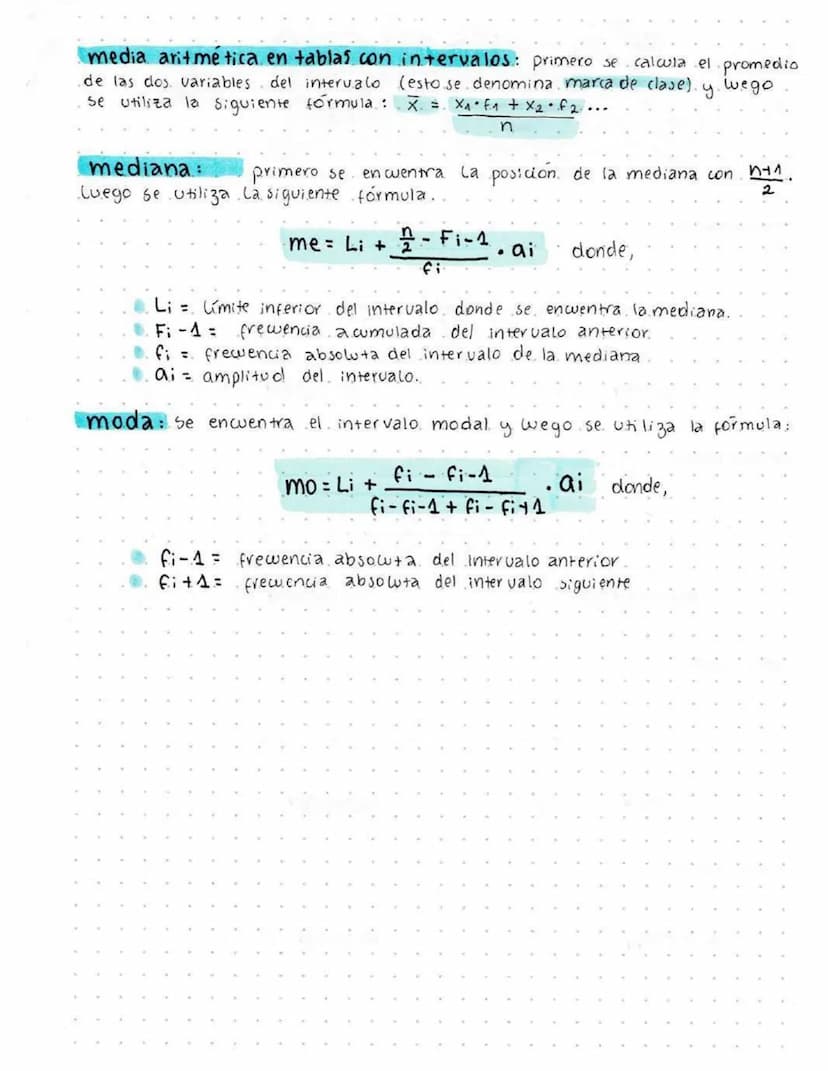 media aritmética en tablas con intervalos: primero se calcula el promedio
de las dos variables del intervalo (esto se denomina marca de clase) y luego
se utiliza la siguiente fórmula: x̄ = (x₁·f₁ + x₂·f₂...)/n
mediana: primero se encuentra la posición de la mediana con (n+1)/2.
Luego se utiliza la siguiente fórmula.
me = Li + (n/2 - Fi-1)/fi · ai donde,
Li = límite inferior del intervalo donde se encuentra la mediana.
Fi-1 = frecuencia acumulada del intervalo anterior
fi = frecuencia absoluta del intervalo de la mediana
ai = amplitud del intervalo.
moda: se encuentra el intervalo modal y luego se utiliza la fórmula:
mo = Li + (fi - fi-1)/(fi - fi-1 + fi - fi+1) · ai donde,
fi-1 = frecuencia absoluta del intervalo anterior
fi+1 = frecuencia absoluta del intervalo siguiente